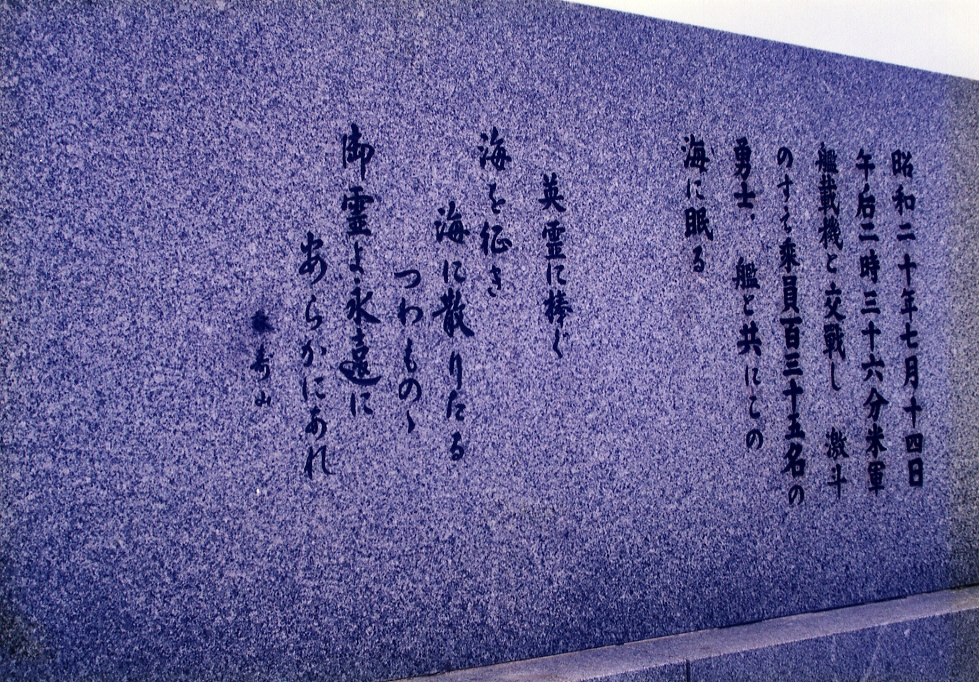 昭和二十年七月十四日
午后二時三十六分米軍
艦載機と交戦し 激斗
のすえ乗員百三十五名の
勇士、艦と共にこの
海に眠る
英霊に捧ぐ
海を征き
海に散りたる
つわものゝ
御霊よ永遠に
あらかにあれ
寿山